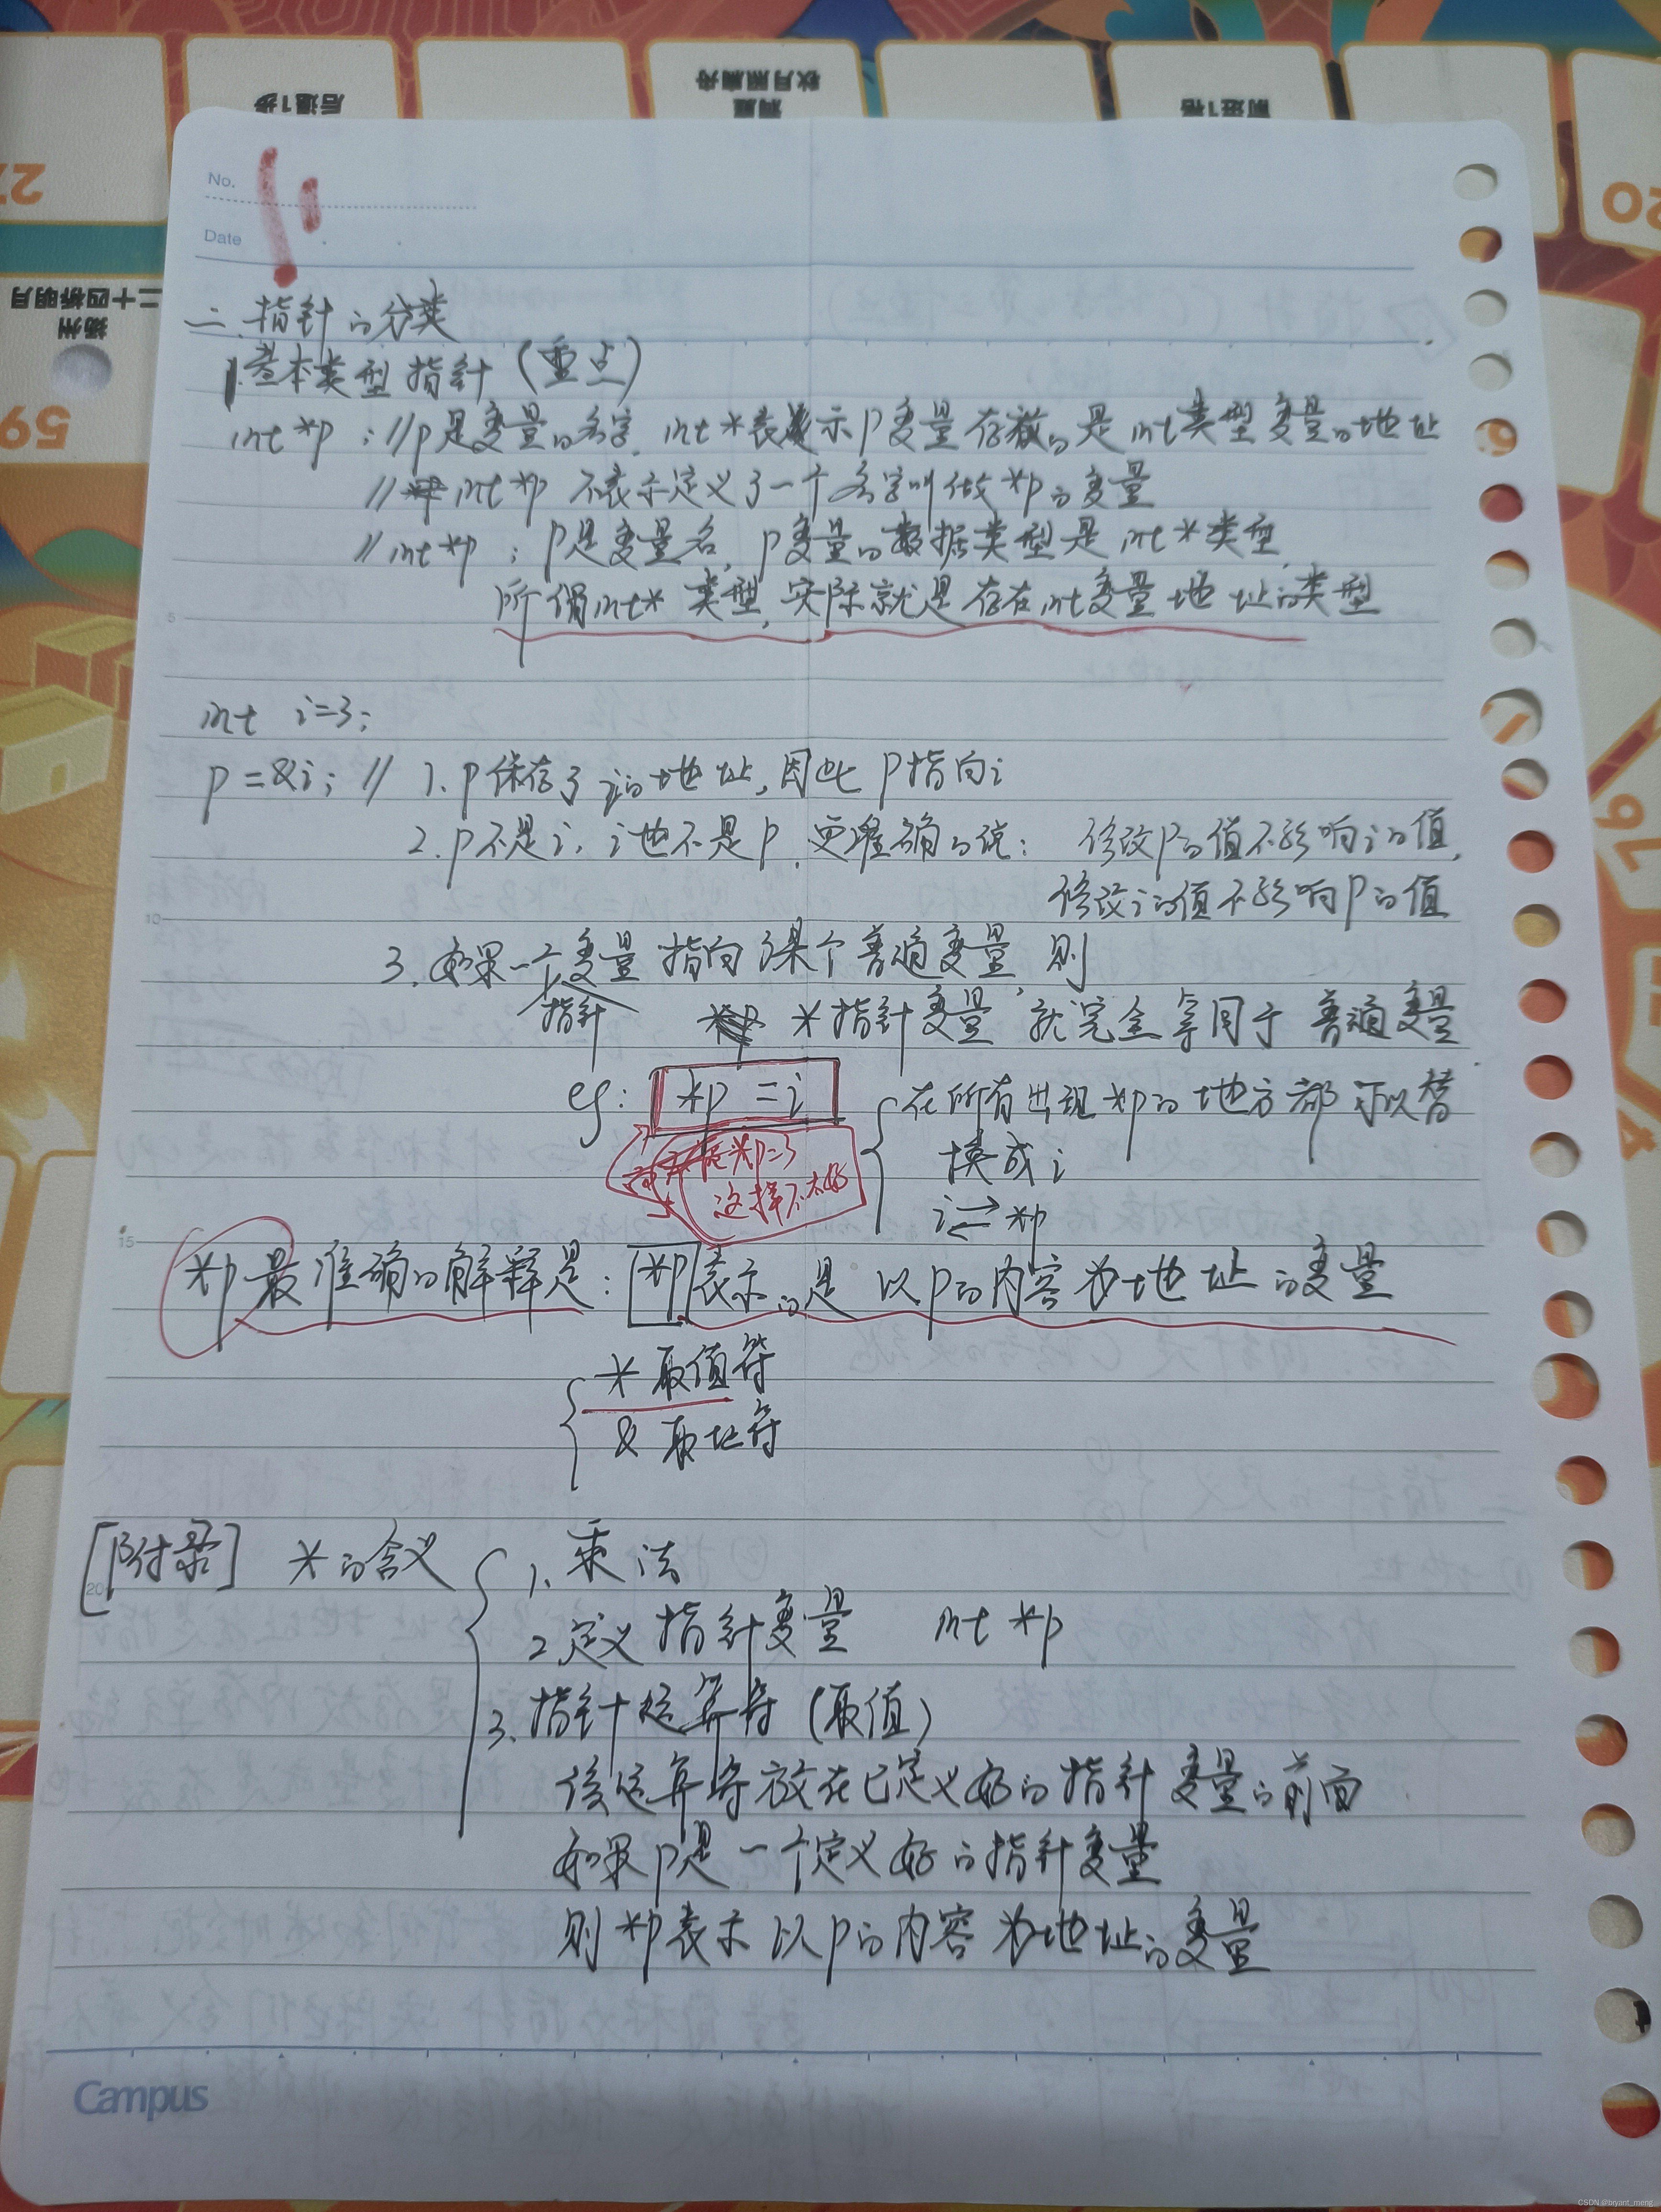 后退1步
洞庭
秋月照扁舟
前进1格
27
20
扬州
二十四桥明月
59
No.
Date
二、指针的分类
1.基本类型指针（重点）
int *p ; //p是变量的名字, int *表示p变量存放的是int类型变量的地址
// int *p 不表示定义了一个名字叫做*p的变量
// int *p ; p是变量名, p变量的数据类型是 int *类型
所谓int * 类型, 实际就是存在int变量地址的类型
5
int i=3;
p = &i; // 1. p保存了i的地址, 因此p指向i
2. p不是i, i也不是p, 更准确的说: 修改p的值不影响i的值,
修改i的值不影响p的值
10
3. 如果一个指针变量指向了某个普通变量, 则
*指针变量 就完全等同于 普通变量
eg: *p = i
在所有出现*p的地方都可以替
换成i
i ⇄ *p
*p=3
这样不太好
15
*p最准确的解释是: *p表示的是 以p的内容为地址的变量
* 取值符
& 取地符
[附录] *的含义
20
1. 乘法
2. 定义指针变量 int *p
3. 指针运算符（取值）
该运算符放在已定义好的指针变量的前面
如果p是一个定义好的指针变量
则 *p表示 以p的内容为地址的变量
Campus
CSDN @bryant_meng